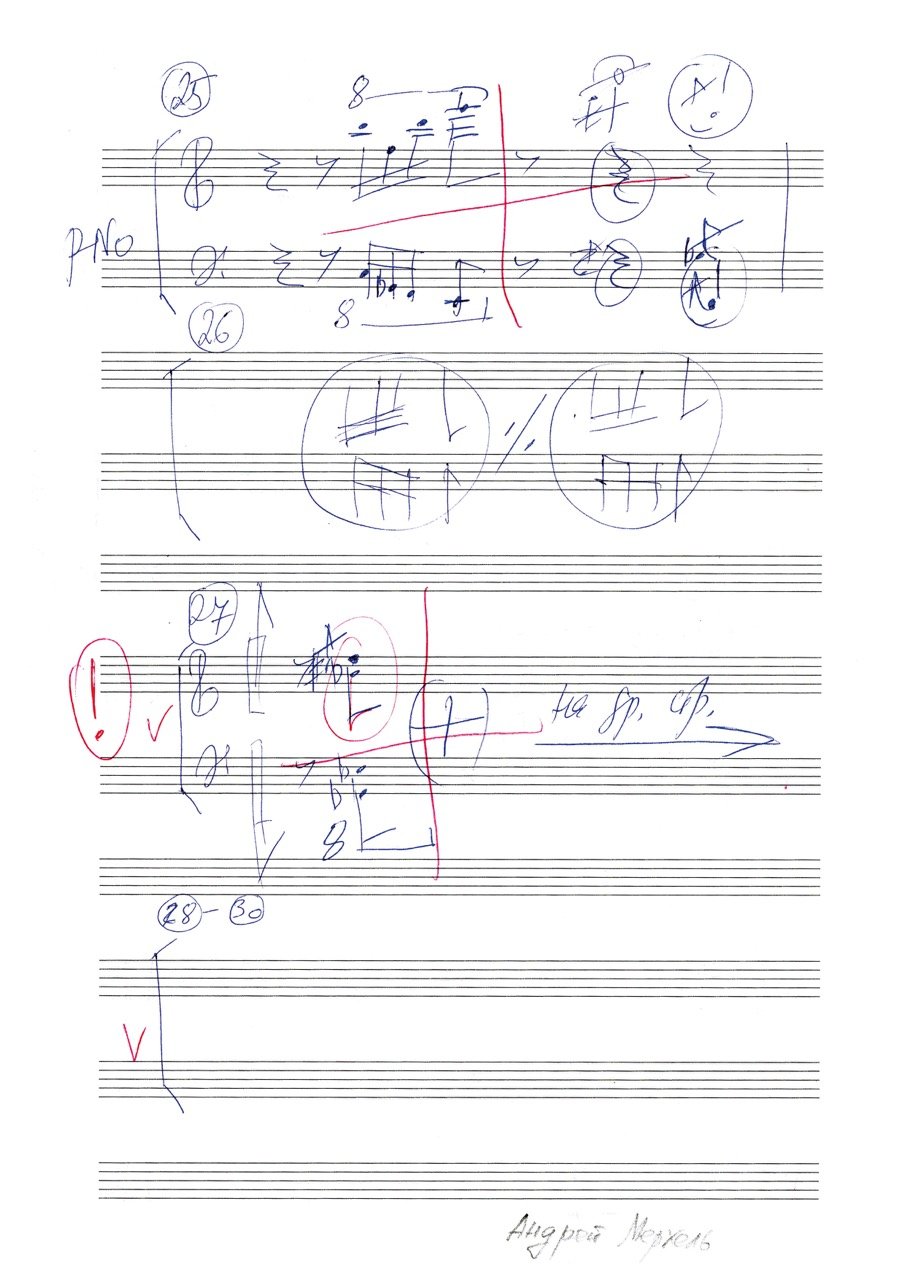 25
8
PNO
8
26
27
!
на др. стр.
8
28 - 30
Андрей Меркель